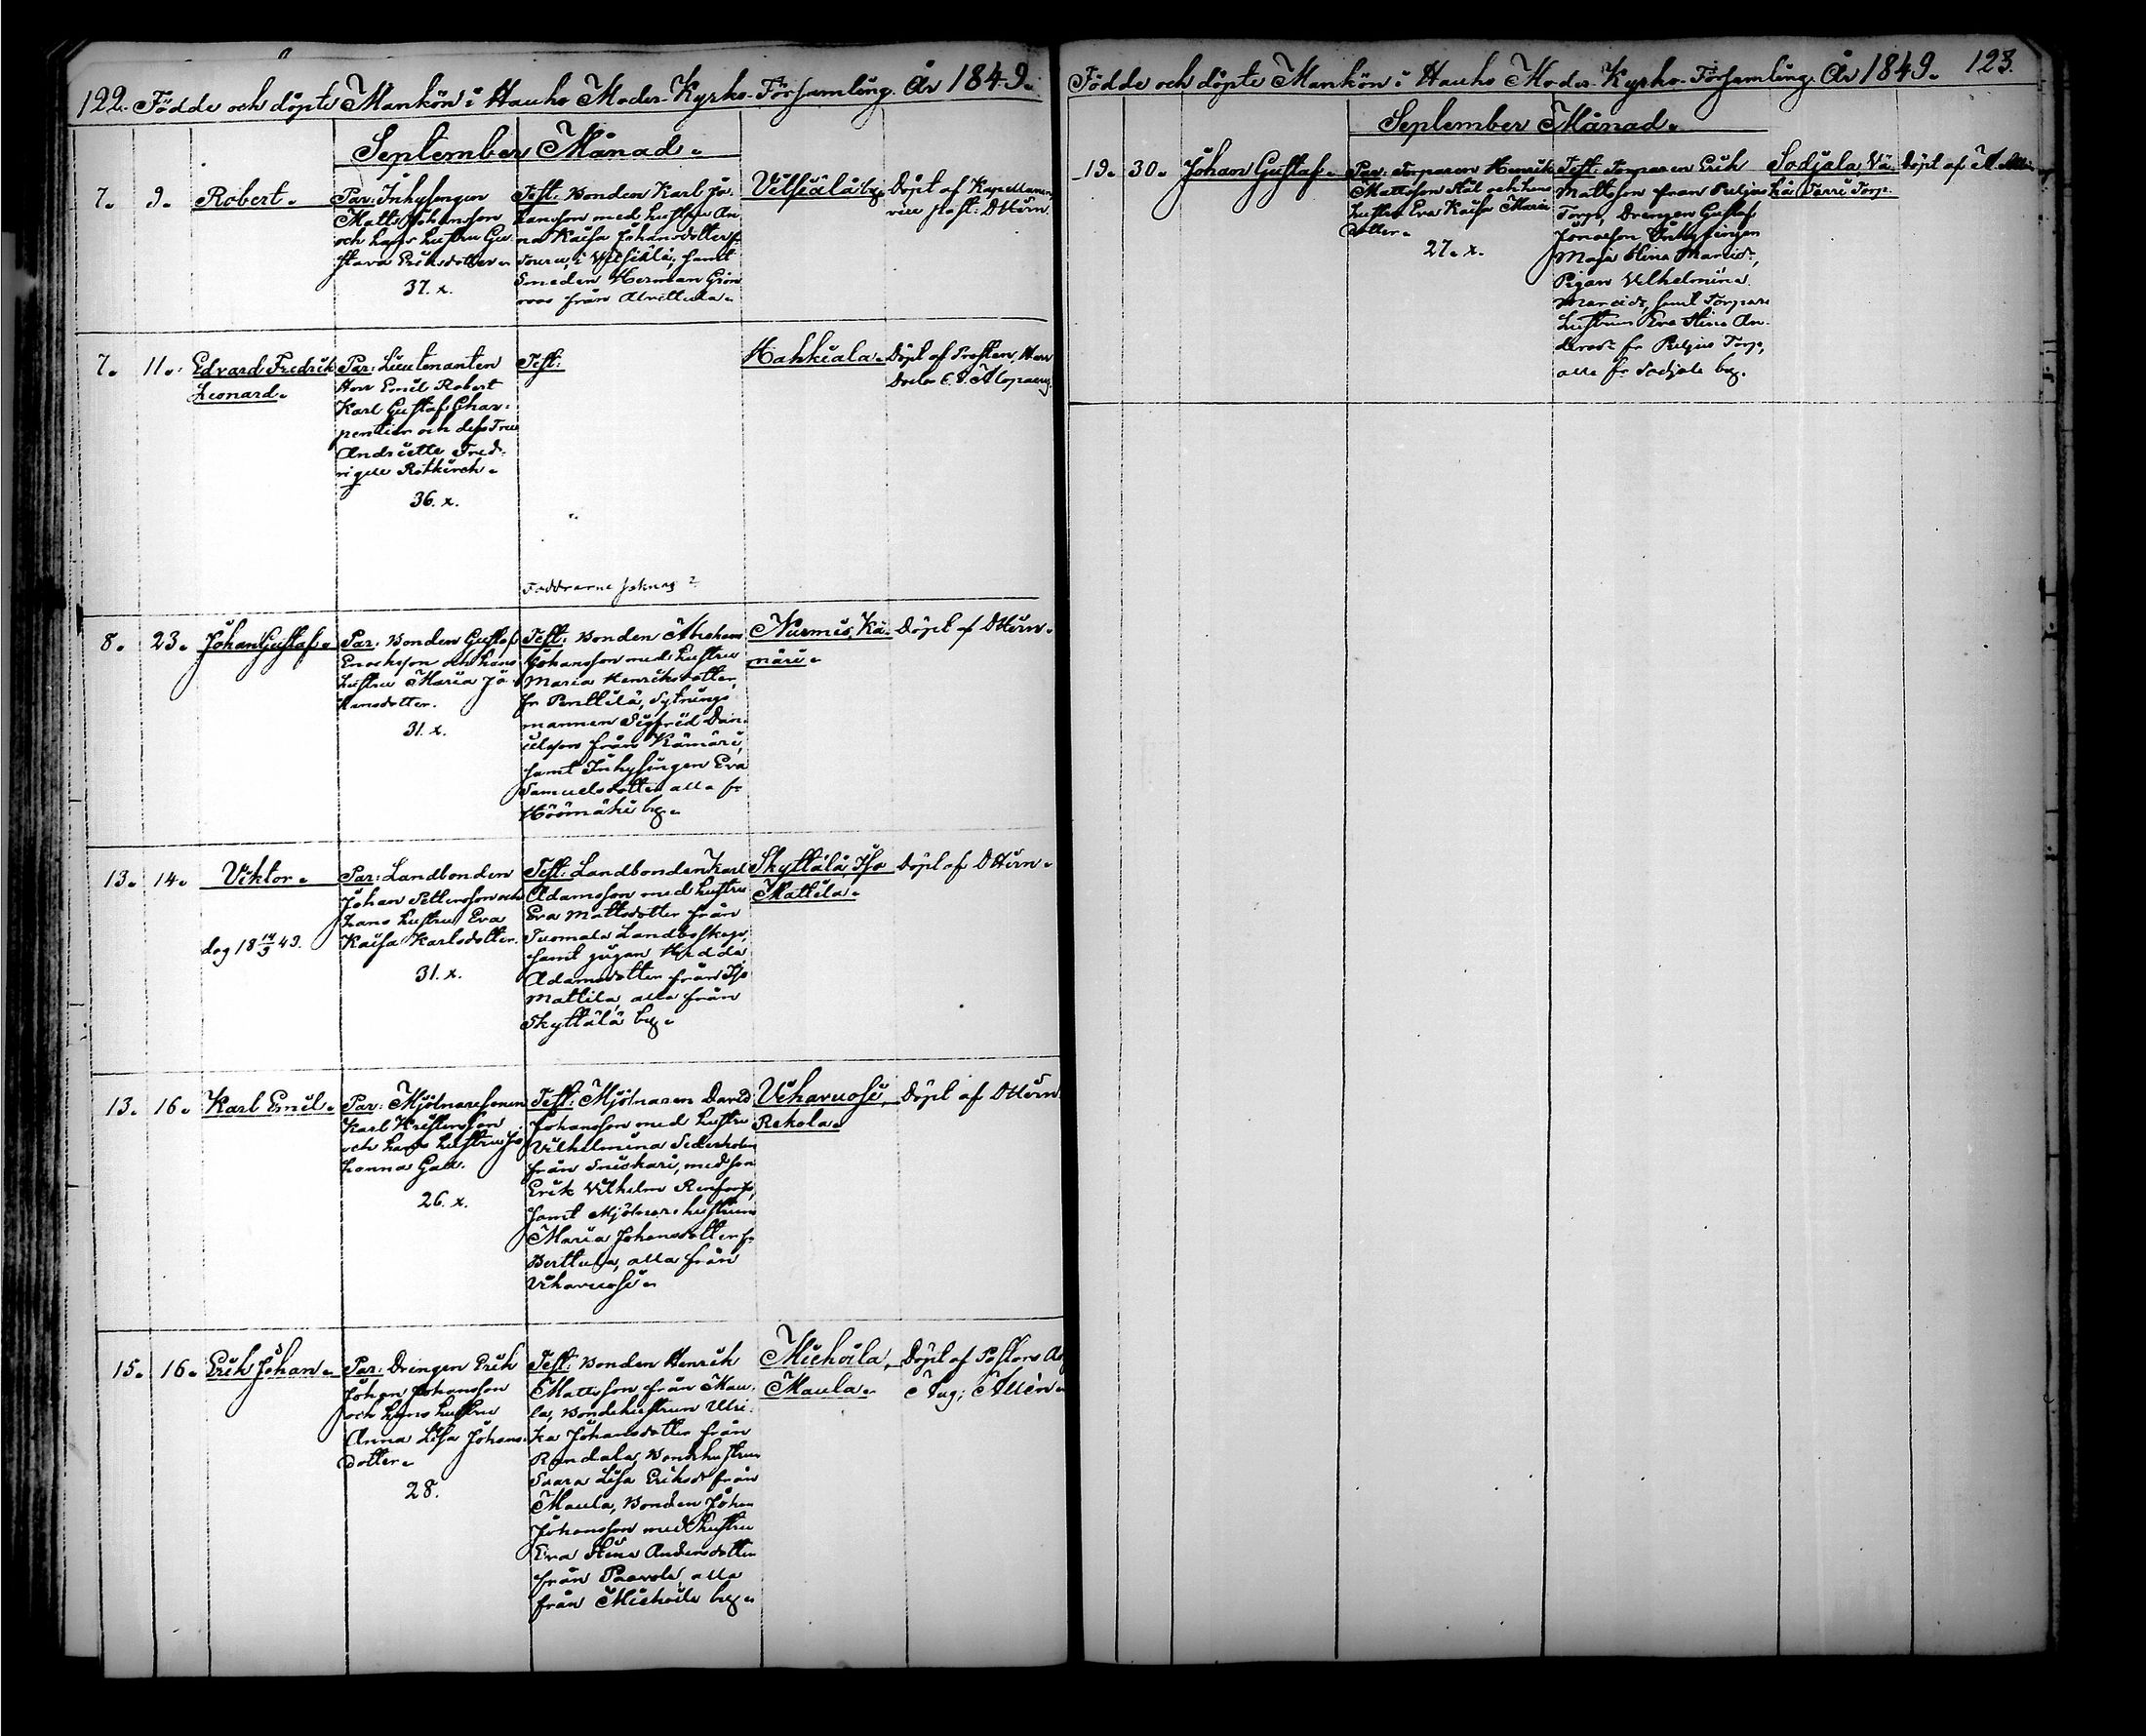 122. Födde och döpte Mankön i Hauho Moder-Kyrko-Församling. År 1849.
September Månad.
7. 9. Robert.
Par: Inhysongen
Matts Johansson
och hans hustru Gu-
stava Eriksdotter.
37. x.
Test: Bonden Karl Jo-
hansson med hustru An-
na Kaisa Johansdotter fr
i Vitsiälä, samt
Smeden Herman Grön-
roos från Alvettula.
Vitsiälä by.
Döpt af Kapellanen,
vice past: DHirn.
7. 11. Edvard Fredrik
Leonard.
Par: Lieutenanten
Herr Emil Robert
Karl Gustaf Char-
pentier och dess Fru
Andriette Fred-
rique Rotkirch.
36. x.
Test:
Faddrarne saknas?
Hahkiala.
Döpt af Prosten, Herr
8. 23. Johan Gustaf.
Par: Bonden Gustaf
Enochsson och hans
hustru Maria Jo-
hansdotter.
31. x.
Test: Bonden Abraham
Johansson med hustru
Maria Henriksdotter,
fr Penttilä, Sytnings-
mannen Sigfrid Dan-
ielsson från Kämäri,
samt Inhysingen Eva
Samuelsdotter alla fr
by.
Nurmis, Kä-
märi.
Döpt af DHirn.
13. 14. Viktor.
dog 18 14/9 49.
Par: Landbonden
Johan Pettersson och
hans hustru Eva
Kaisa Karlsdotter.
31. x.
Test: Landbonden Karl
Adamsson med hustru
Eva Mattsdotter från
Tuomala
samt pigan Hedda
Adamsdotter från Iso
Mattila, alla från
Skyttälä by.
Skyttälä, Iso
Mattila.
Döpt af DHirn.
13. 16. Karl Emil.
Par: Mjölnaresonen
Karl Kristersson
och hans hustru Jo-
hanna
26. x.
Test: Mjölnaren David
Johansson med hustru
Vilhelmina Sederholm
från med son
Erik Vilhelm
samt Mjölnarehustrun
Maria Johansdotter fr
Berttula, alla från
Vihavuosi.
Vihavuosi,
Rekola.
Döpt af DHirn.
15. 16. Erik Johan.
Par: Drengen Erik
Johan Johansson
och hans hustru
Anna Lisa Johans-
dotter.
28.
Test: Bonden Henrik
Mattsson från Mau-
la, Bondehustrun Ulri-
ka Johansdotter från
Bondehustrun
Saara Lisa Eriksd: från
Maula, Bonden Johan
Johansson med hustru
Eva Stina Andersdotter
från Paavola, alla
från Miehoila by.
Miehoila,
Maula.
Döpt af Pastors Adj
Aug: Allén.
Födde och döpte Mankön i Hauho Moder-Kyrko-Församling. År 1849. 123.
September Månad.
19. 30. Johan Gustaf.
Par: Torparen Henrik
Mattsson och hans
hustru Eva Kaisa Maria
dotter.
27. x.
Test: Torparen Erik
Mattsson från
Torp, Drengen Gustaf
Jonasson Inhysingen
Maja Stina
Pigan Vilhelmina
samt Torpare
hustrun Eva Stina An-
dersd: fr Torp,
alla fr Sotjala by.
Sotjala, Vä-
hä Torp.
Döpt af A